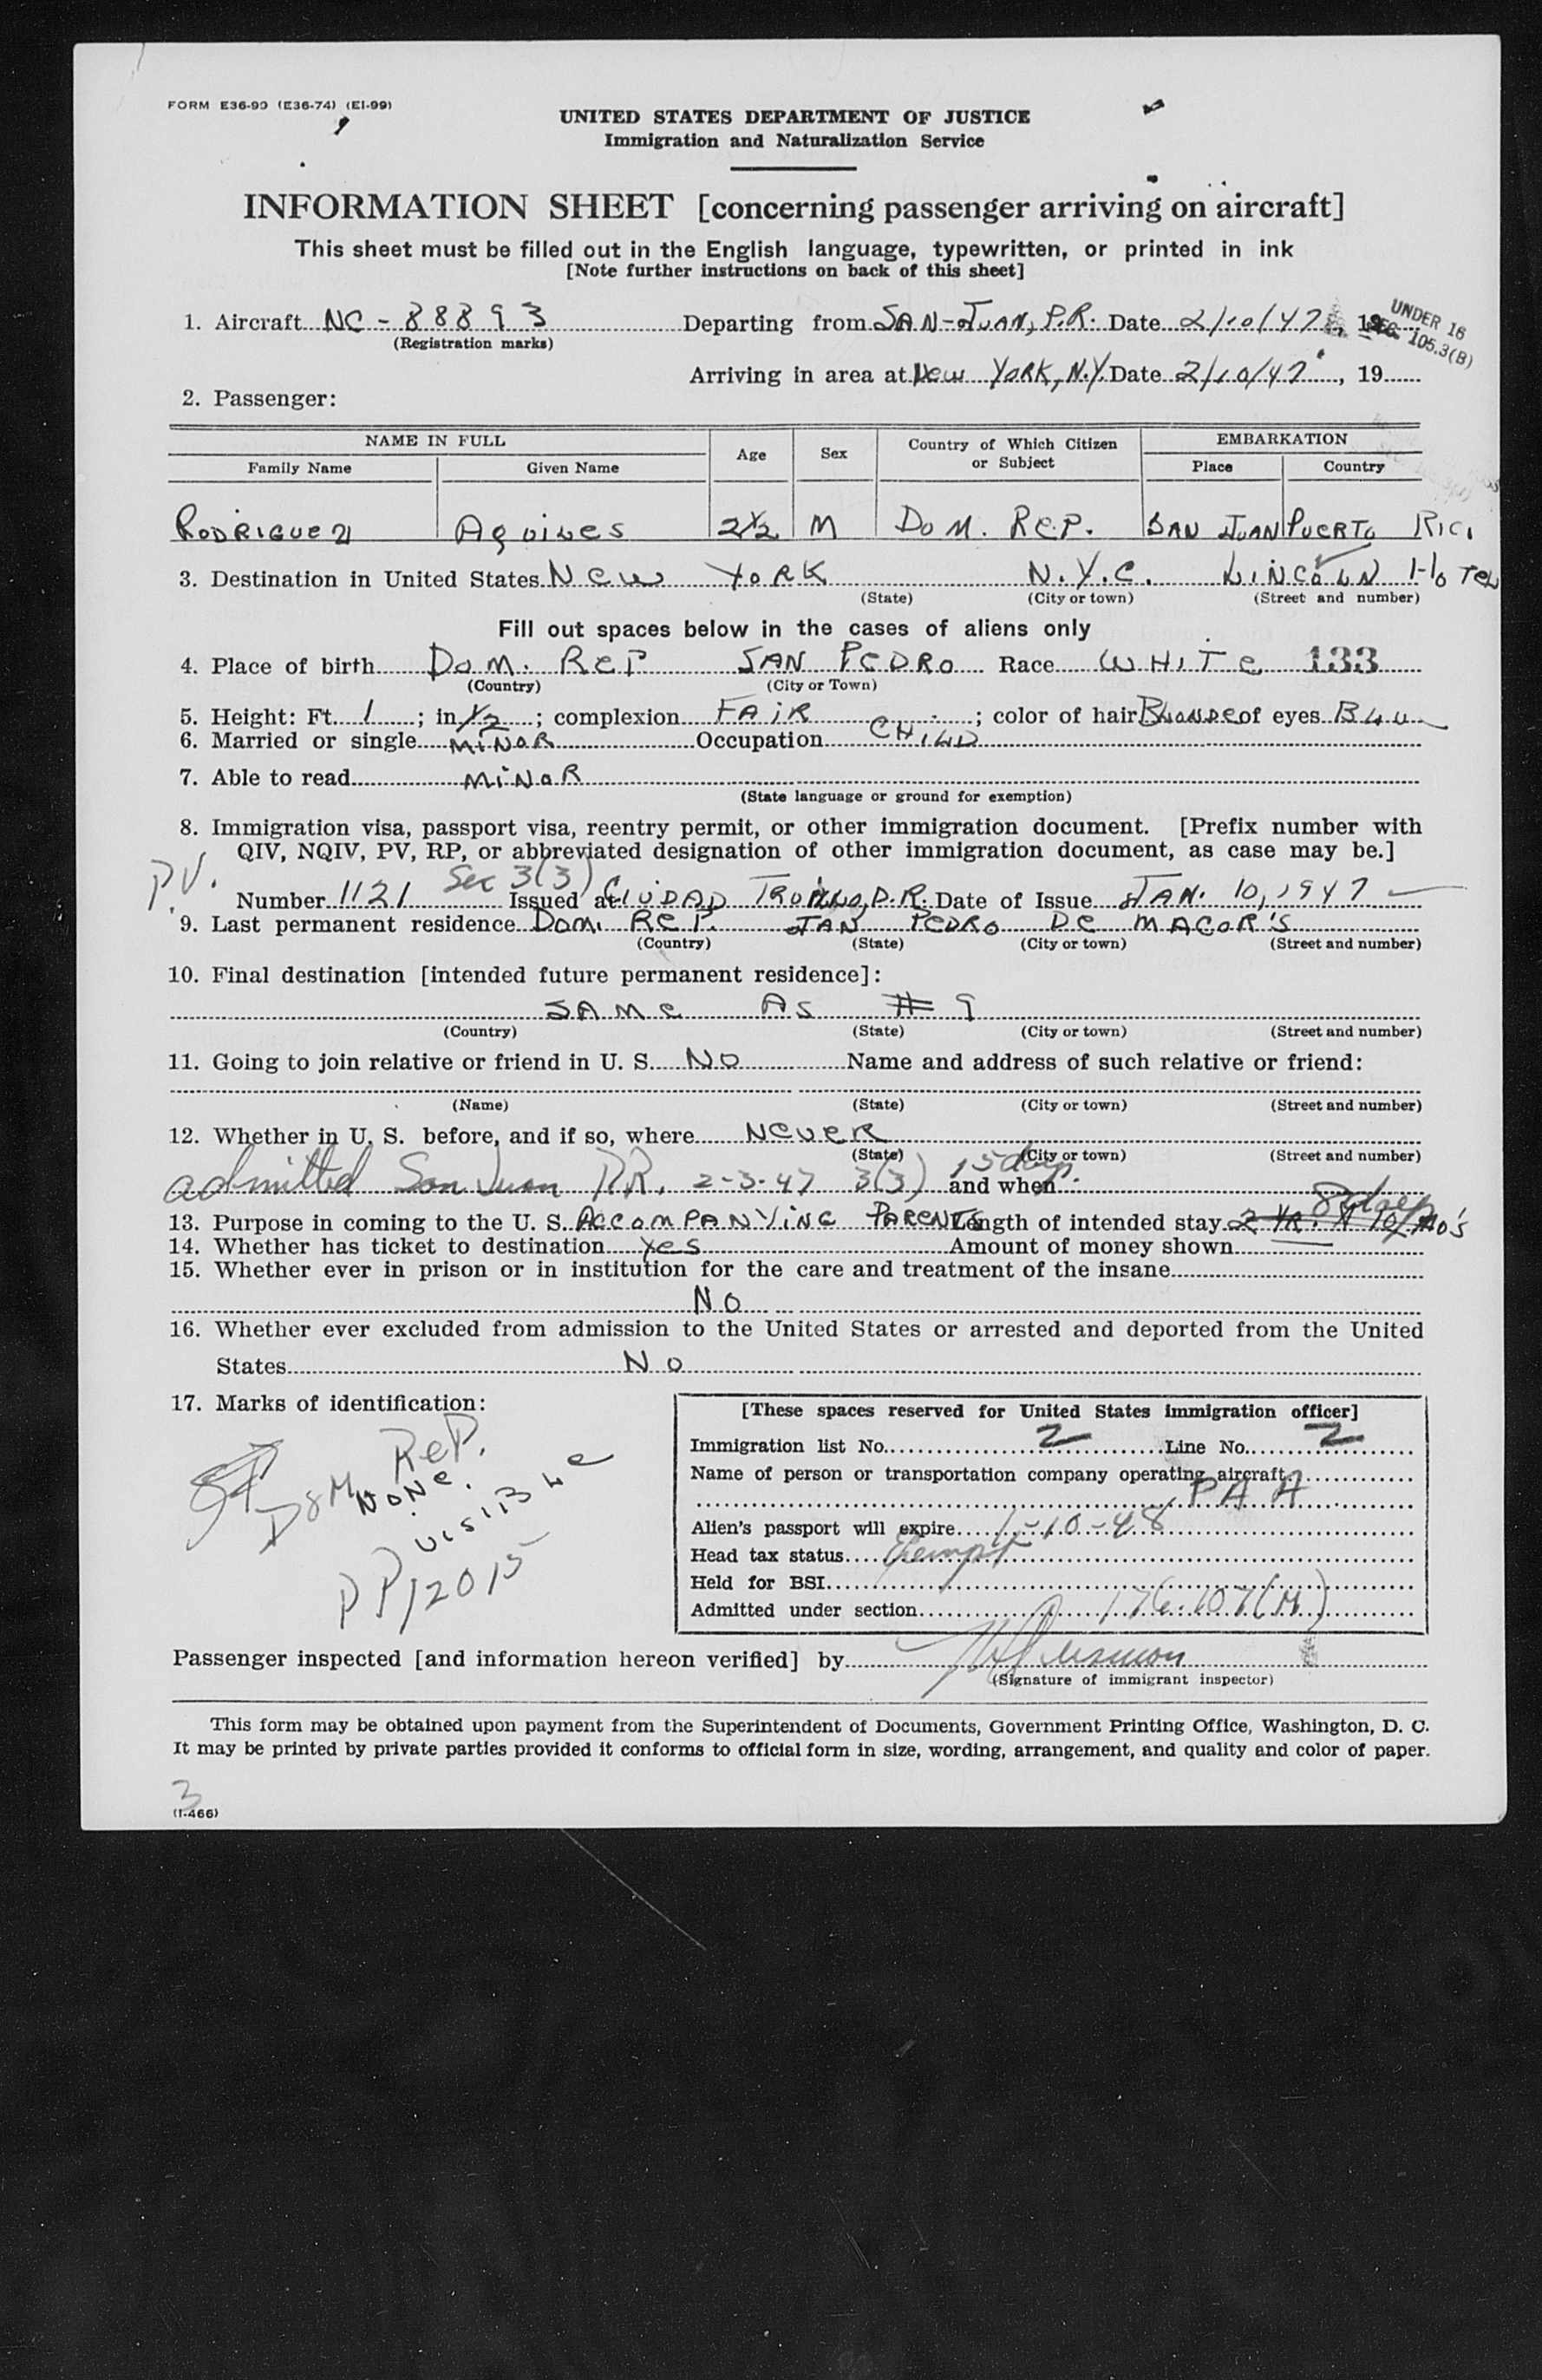 FORM E36-99 (E36-74) (EI-99)
UNITED STATES DEPARTMENT OF JUSTICE
Immigration and Naturalization Service
INFORMATION SHEET [concerning passenger arriving on aircraft]
This sheet must be filled out in the English language, typewritten, or printed in ink
[Note further instructions on back of this sheet]
1. Aircraft NC-88893 Departing from SAN-JUAN, P.R. Date 2/10/47, 19
(Registration marks)
UNDER 16
SEC. 105.3(B)
Arriving in area at New YORK, N.Y. Date 2/10/47, 19
2. Passenger:
NAME IN FULL Age Sex Country of Which Citizen or Subject EMBARKATION
Family Name Given Name Place Country
RODRIGUEZ AQUILES 2½ M DOM. REP. SAN JUAN PUERTO RICO
3. Destination in United States New YORK N.Y.C. LINCOLN HoTeL
(State) (City or town) (Street and number)
Fill out spaces below in the cases of aliens only
4. Place of birth DOM. REP SAN PEDRO Race WHITe 133
(Country) (City or Town)
5. Height: Ft. 1; in ½; complexion FAiR; color of hair BLONDE of eyes BLU
6. Married or single MiNOR Occupation CHILD
7. Able to read MiNOR
(State language or ground for exemption)
8. Immigration visa, passport visa, reentry permit, or other immigration document. [Prefix number with
QIV, NQIV, PV, RP, or abbreviated designation of other immigration document, as case may be.]
P.V. Number 1121 Sec 3(3) Issued at CIUDAD TRUJILLO, D.R. Date of Issue JAN. 10, 1947
9. Last permanent residence Dom. REP. SAN PEDRO DE MACOR'S
(Country) (State) (City or town) (Street and number)
10. Final destination [intended future permanent residence]:
SAMe AS # 9
(Country) (State) (City or town) (Street and number)
11. Going to join relative or friend in U. S. NO Name and address of such relative or friend:
(Name) (State) (City or town) (Street and number)
12. Whether in U. S. before, and if so, where NeveR
(State) (City or town) (Street and number)
admitted San Juan P.R. 2-3-47 3(3) 15 days and when
13. Purpose in coming to the U. S. ACCOMPANYiNG PARENTS Length of intended stay
14. Whether has ticket to destination yes Amount of money shown
15. Whether ever in prison or in institution for the care and treatment of the insane
NO
16. Whether ever excluded from admission to the United States or arrested and deported from the United
States No
17. Marks of identification:
Dom Rep.
NONe.
VISIBLe
PP 12015
[These spaces reserved for United States immigration officer]
Immigration list No. 2 Line No. 2
Name of person or transportation company operating aircraft
PAA
Alien's passport will expire 1-10-48
Head tax status Exempt
Held for BSI
Admitted under section 176.107(M)
Passenger inspected [and information hereon verified] by
(Signature of immigrant inspector)
This form may be obtained upon payment from the Superintendent of Documents, Government Printing Office, Washington, D. C.
It may be printed by private parties provided it conforms to official form in size, wording, arrangement, and quality and color of paper.
3
(I-466)